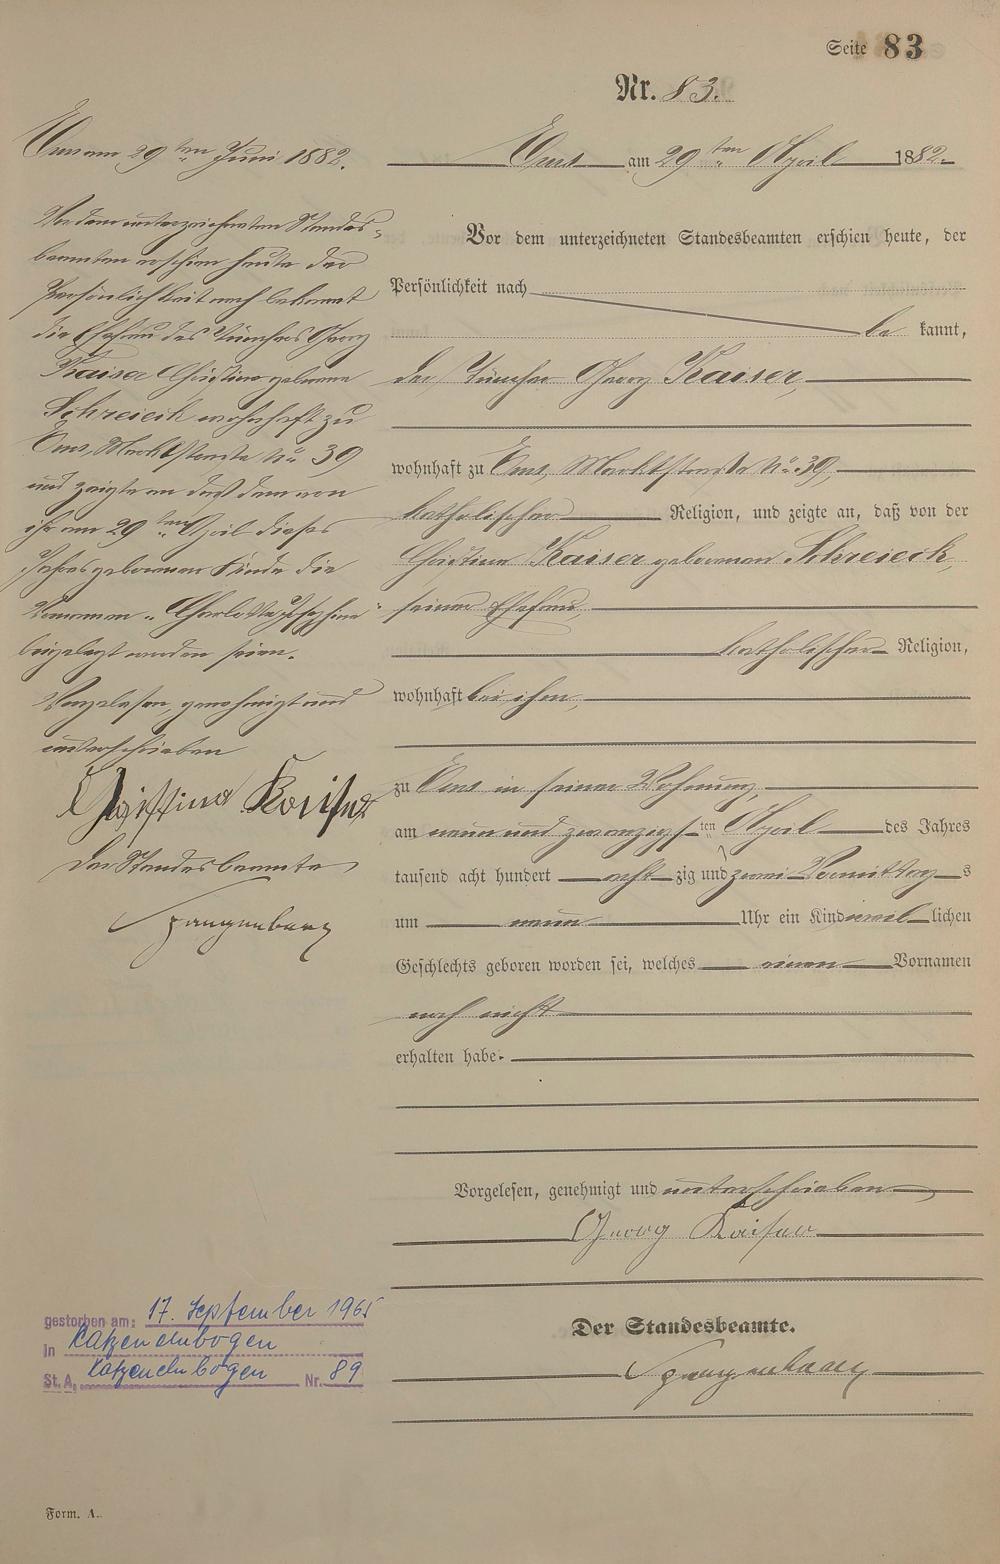 Seite 83
Nr. 83.
Ems am 29ten April 1882.
Vor dem unterzeichneten Standesbeamten erschien heute, der
Persönlichkeit nach
be kannt,
der Tüncher Georg Kaiser,
wohnhaft zu Ems, Marktstraße No. 39,
katholischer Religion, und zeigte an, daß von der
Christina Kaiser geborenen Schreieck,
seiner Ehefrau,
katholischer Religion,
wohnhaft bei ihm,
zu Ems in seiner Wohnung,
am neun und zwanzigsten April des Jahres
tausend acht hundert acht zig und zwei Vormittags
um neun Uhr ein Kind weiblichen
Geschlechts geboren worden sei, welches einen Vornamen
noch nicht
erhalten habe.
Vorgelesen, genehmigt und unterschrieben
Georg Kaiser
Der Standesbeamte.
Spangenberg
Ems am 29ten Juni 1882.
Vor dem unterzeichneten Standes-
beamten erschien heute der
Persönlichkeit nach bekannt
die Ehefrau des Tünchers Georg
Kaiser Christina geborene
Schreieck wohnhaft zu
Ems, Marktstraße No. 39
und zeigte an daß dem von
ihr am 29ten April dieses
Jahres geborenen Kinde die
Vornamen „Charlotte Josephine“
beigelegt worden seien.
Vorgelesen, genehmigt und
unterschrieben
Christina Kaiser
Der Standesbeamte
Spangenberg
gestorben am: 17. September 1965
in Katzenelnbogen
St. A. Katzenelnbogen Nr. 89
Form. A.